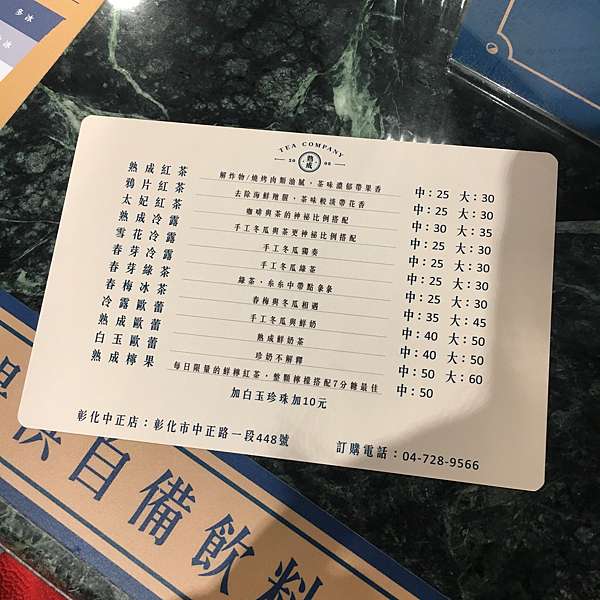 多冰
TEA COMPANY
20 熟成 08
熟成紅茶 解炸物/燒烤肉類油膩，茶味濃郁帶果香 中：25 大：30
鴉片紅茶 去除海鮮羶腥，茶味較淡帶花香 中：25 大：30
太妃紅茶 咖啡與茶的神祕比例搭配 中：30 大：35
熟成冷露 手工冬瓜與茶更神祕比例搭配 中：25 大：30
雪花冷露 手工冬瓜獨奏 中：25 大：30
春芽冷露 手工冬瓜綠茶 中：25 大：30
春芽綠茶 綠茶，糸糸中帶點彔彔 中：25 大：30
春梅冰茶 春梅與冬瓜相遇 中：35 大：45
冷露歐蕾 手工冬瓜與鮮奶 中：40 大：50
熟成歐蕾 熟成鮮奶茶 中：40 大：50
白玉歐蕾 珍奶不解釋 中：50 大：60
熟成檸果 每日限量的鮮檸紅茶，整顆檸檬搭配7分糖最佳 中：50
加白玉珍珠加10元
彰化中正店：彰化市中正路一段448號 訂購電話：04-728-9566
供自備飲料